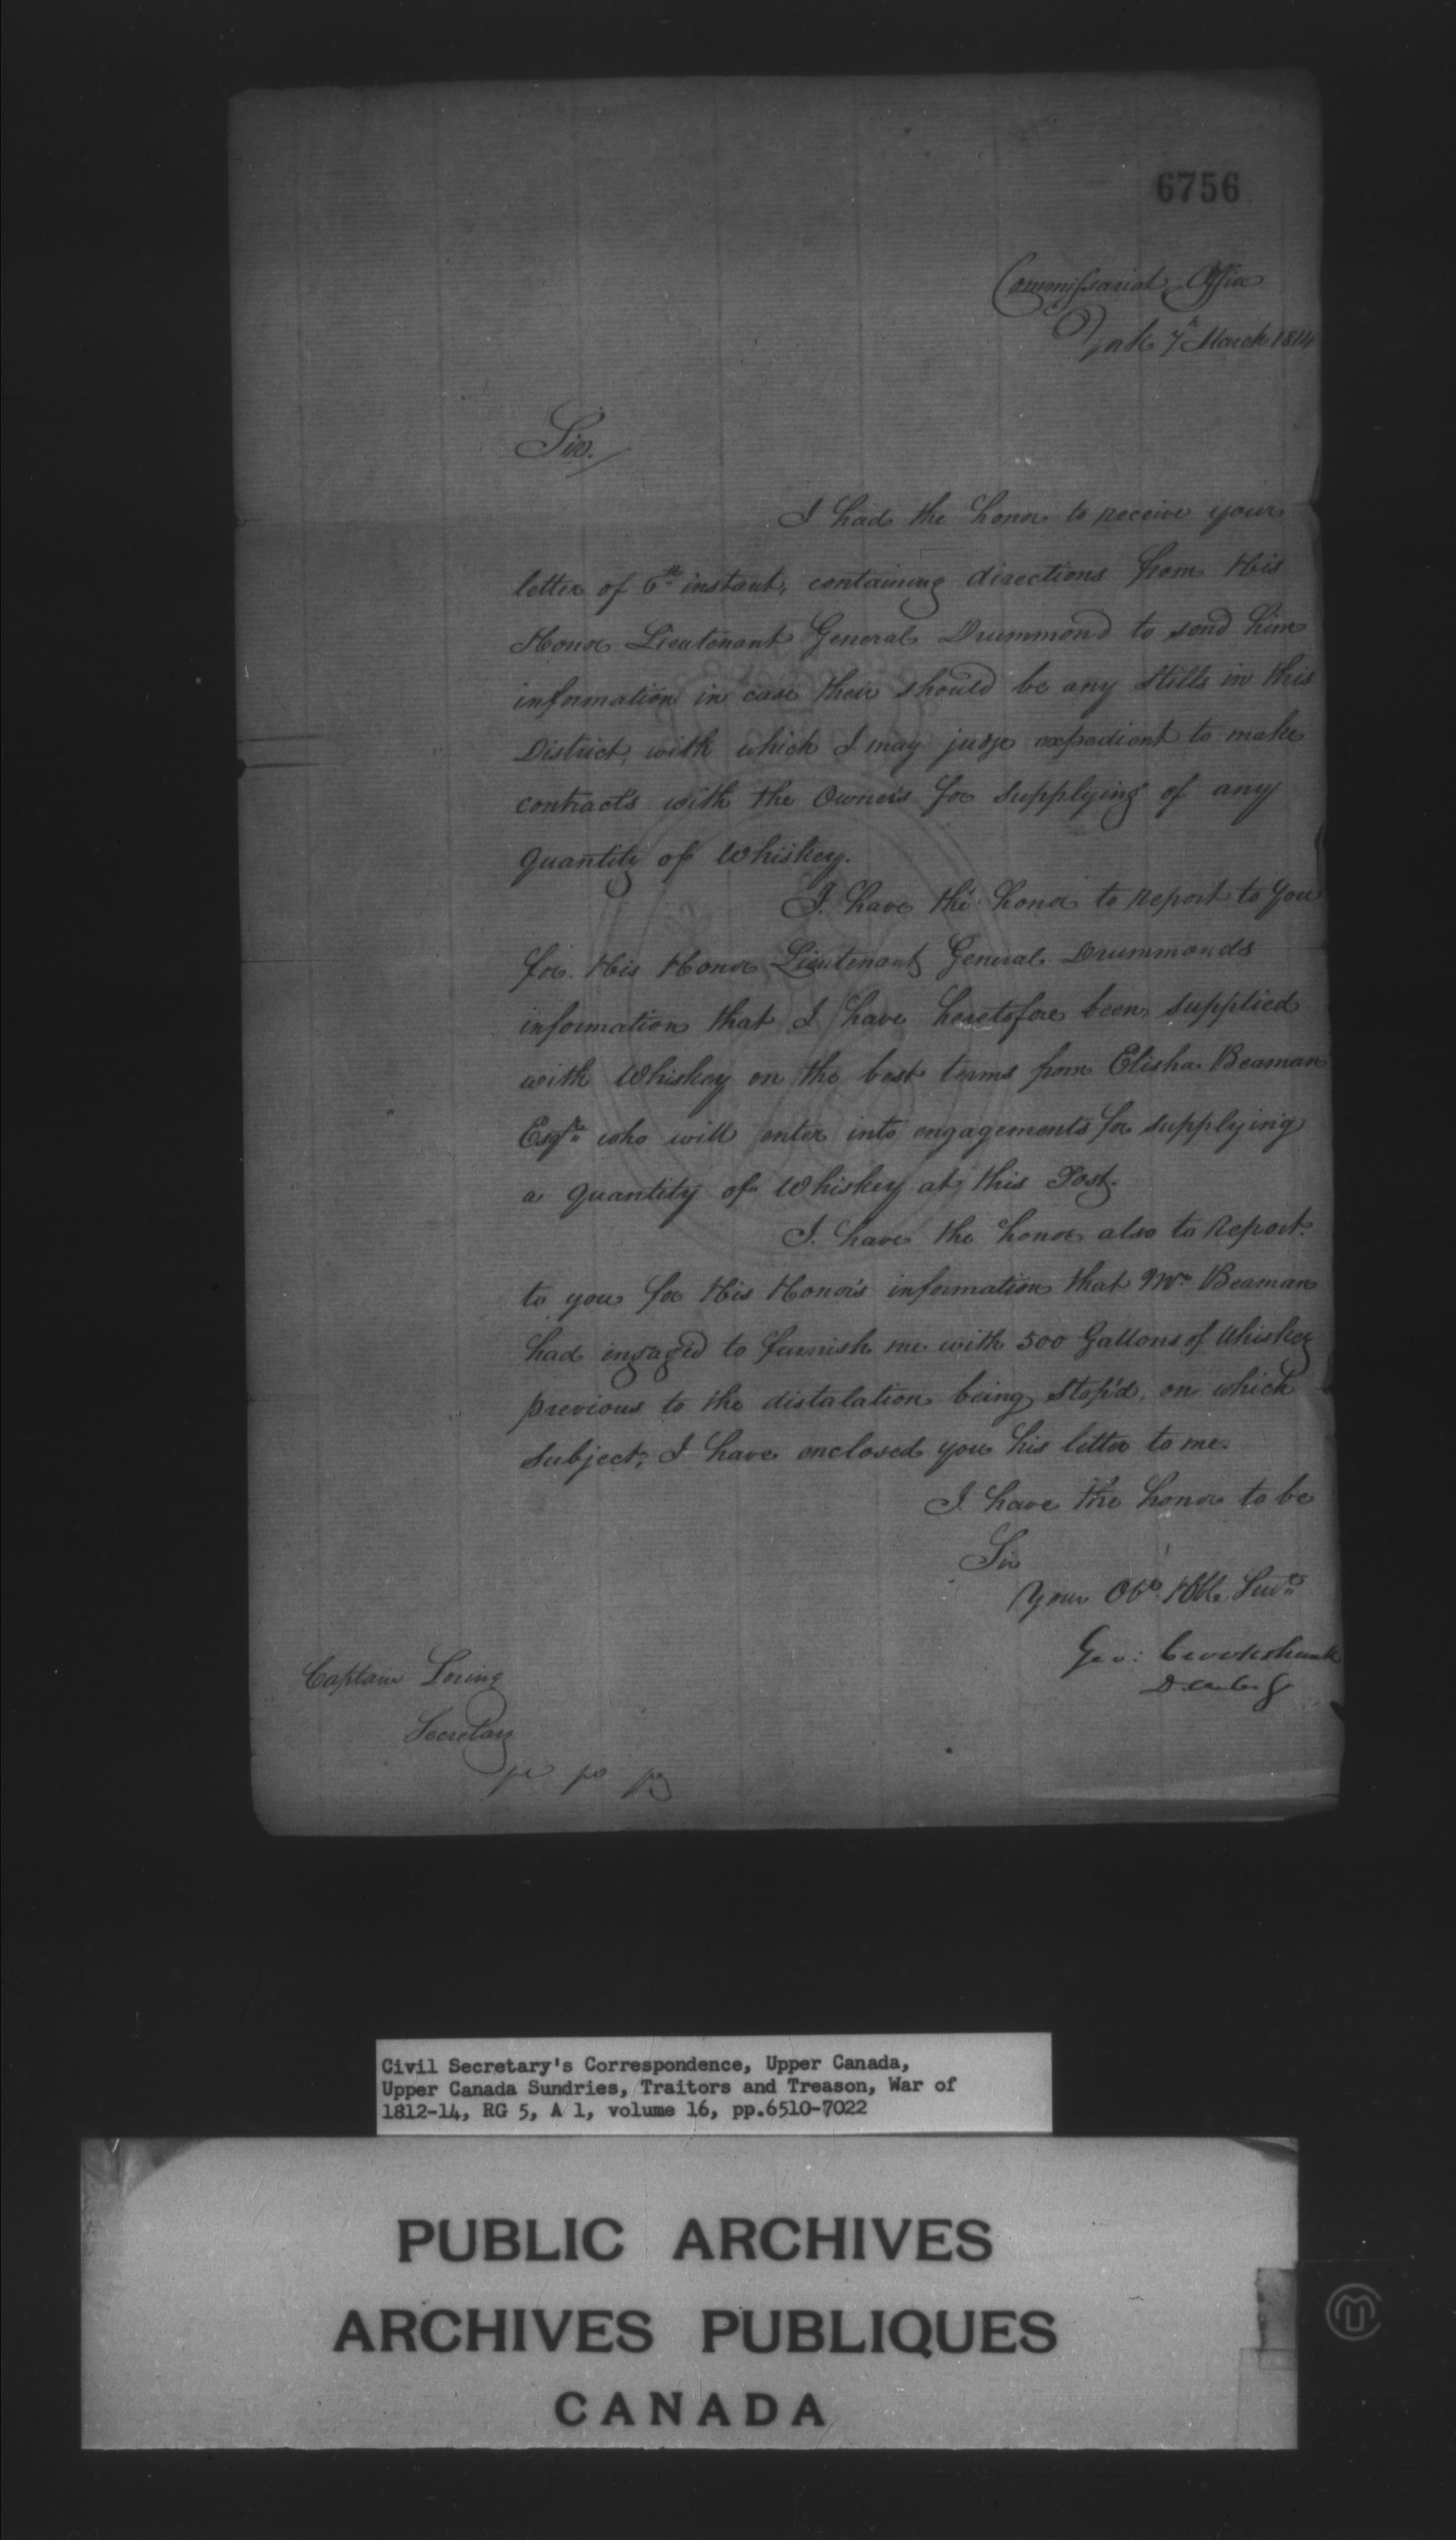 6756
Commissariat Office
York 7th March 1814
Sir./
I had the honor to receive your
letter of 6th instant, containing directions from His
Honor Lieutenant General Drummond to send him
information in case their should be any Stills in this
District, with which I may judge expedient to make
contracts with the Owners for Supplying of any
quantity of Whiskey.
I have the honor to report to You
for His Honor Lieutenant General Drummonds
information that I have heretofore been Supplied
with Whiskey on the best terms from Elisha Beaman
Esqre who will enter into engagements for supplying
a quantity of Whiskey at this Post.
I have the honor also to Report
to you for His Honors information that Mr. Beaman
had ingaged to furnish me with 500 Gallons of Whiskey
previous to the distalation being Stop'd, on which
Subject, I have enclosed you his letter to me.
I have the honor to be
Sir
Your Obt Hble Servt
Geo: Crookshank
Captain Loring
Secretary
Civil Secretary's Correspondence, Upper Canada,
Upper Canada Sundries, Traitors and Treason, War of
1812-14, RG 5, A 1, volume 16, pp.6510-7022
PUBLIC ARCHIVES
ARCHIVES PUBLIQUES
CANADA